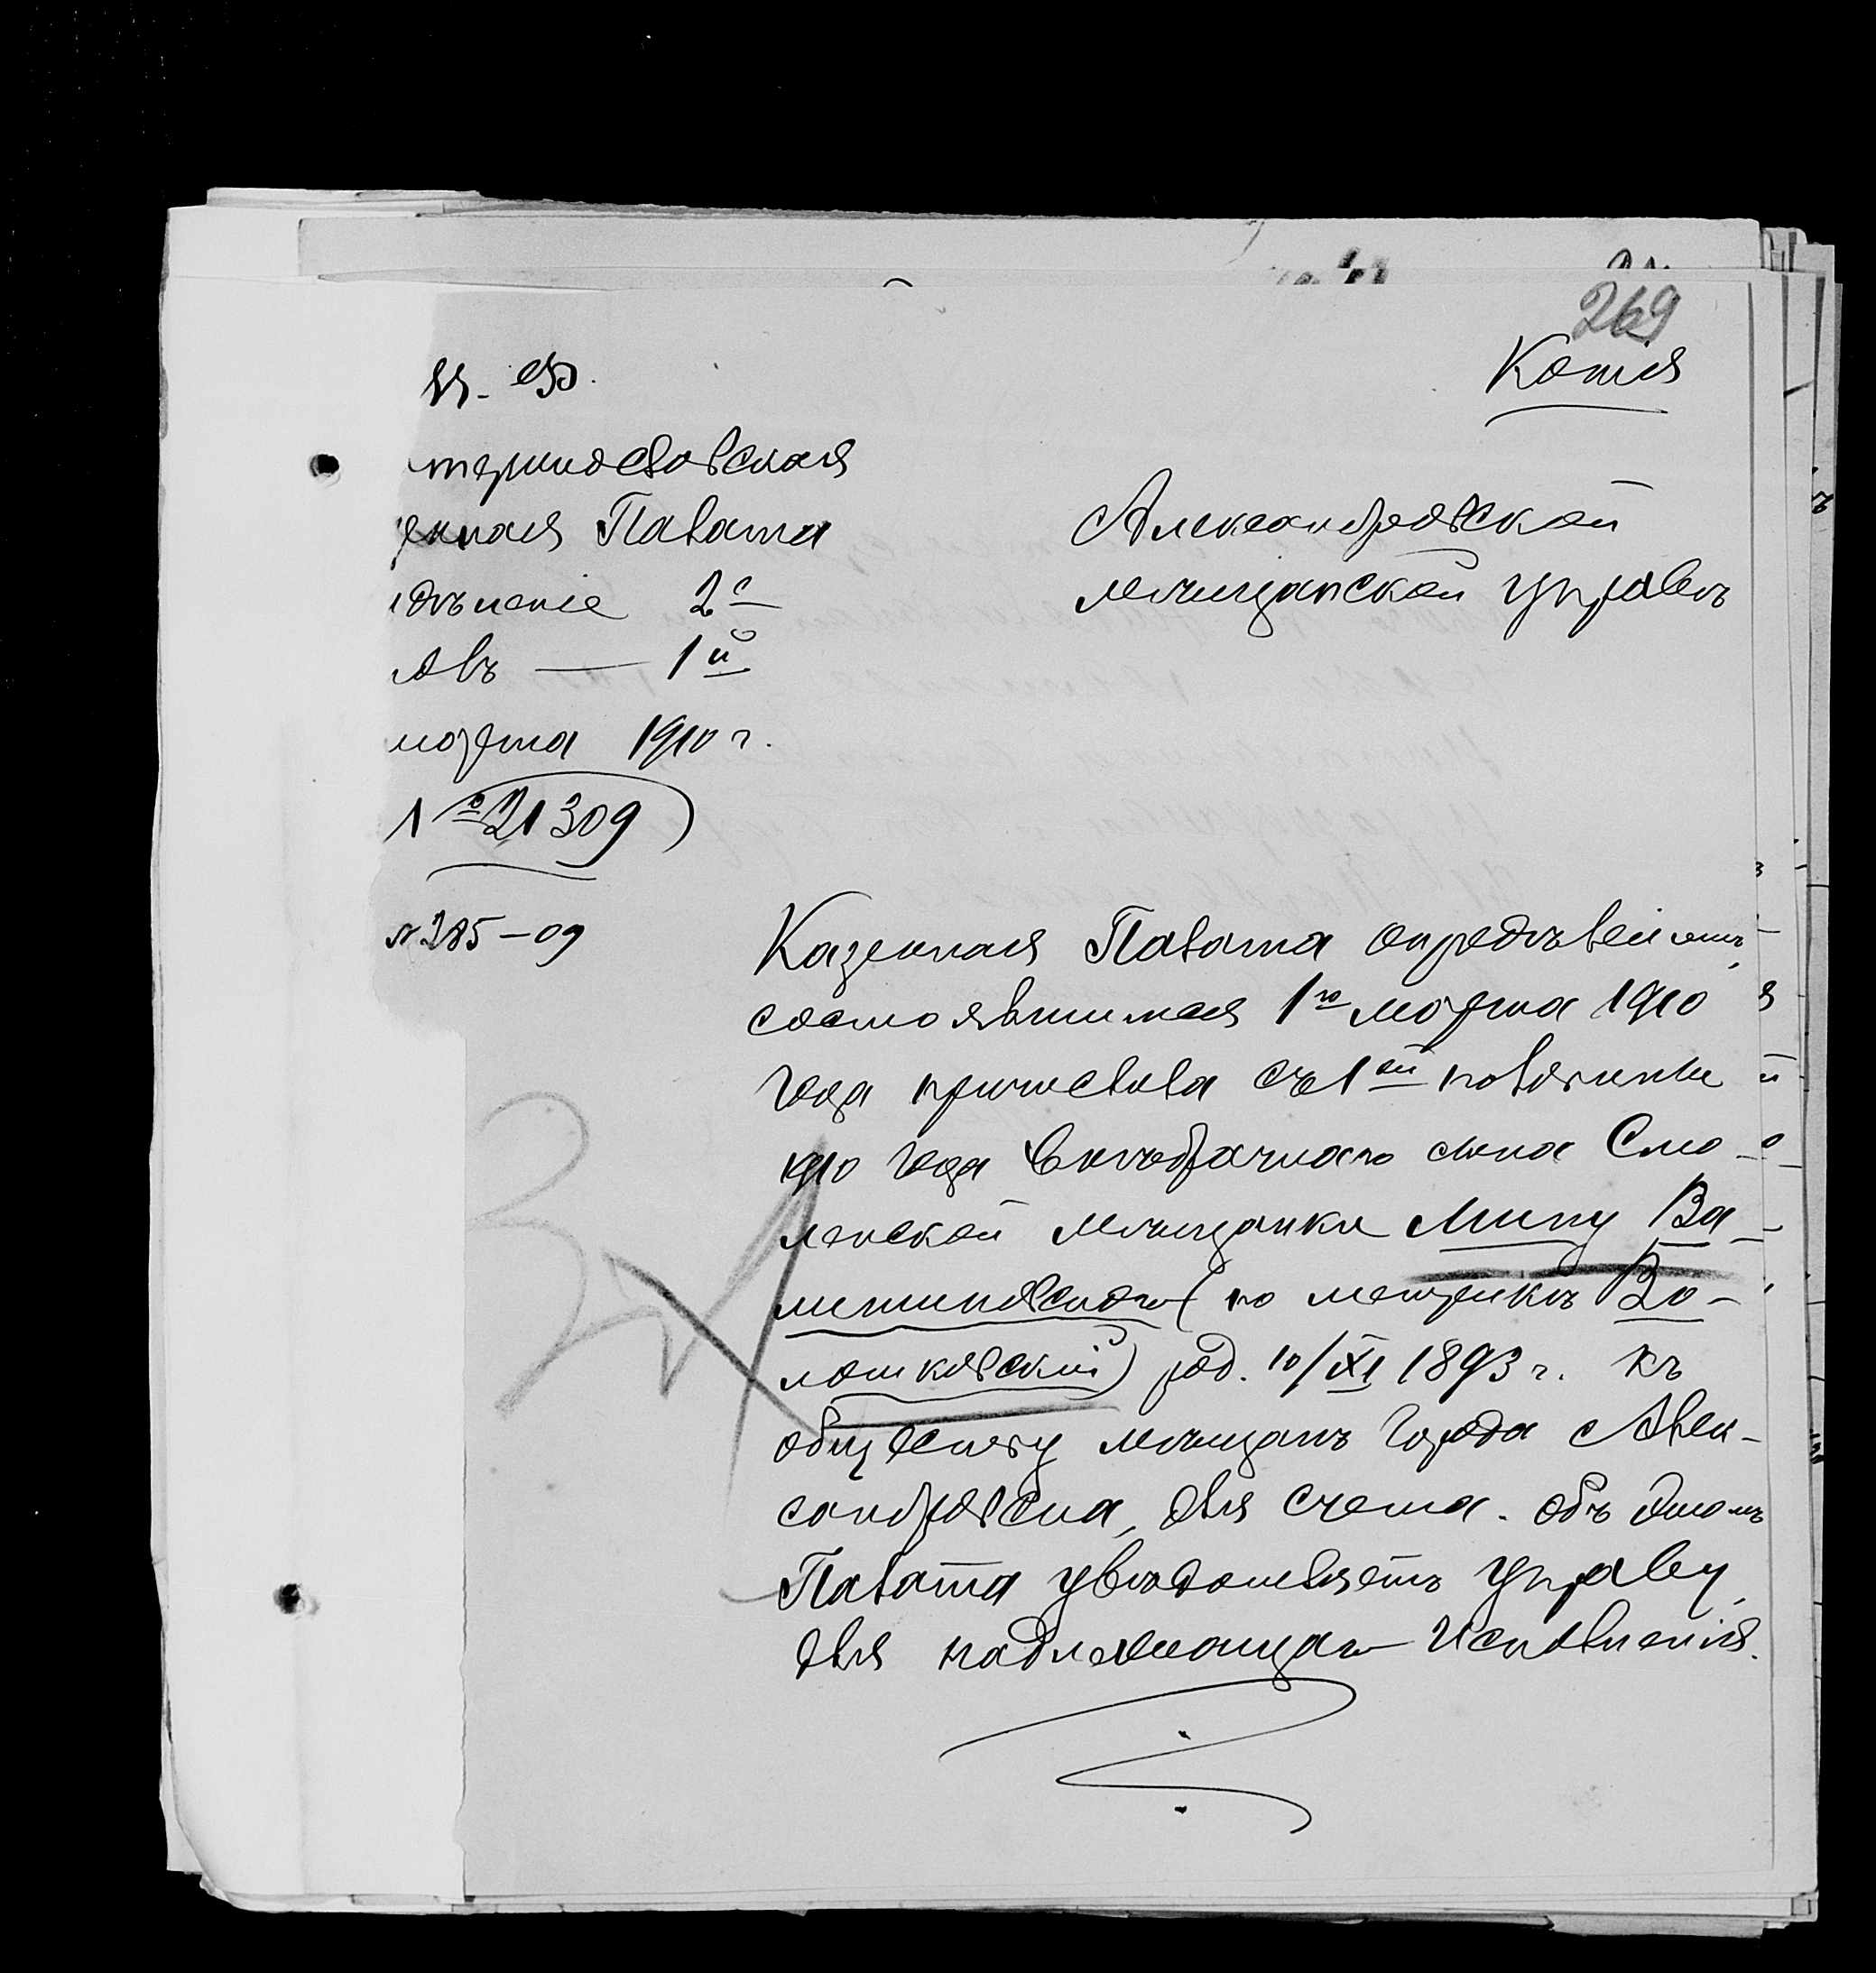 269
Копія
М. Ф.
теринославская
енная Палата
дѣленіе 2е
олъ — 1й
марта 1910 г.
№ 21309
№ 285-09
Александровской
мѣщанской управѣ
Казенная Палата опредѣленіемъ,
состоявшимся 1го марта 1910
года причислила съ 1ой половины
1910 года внѣбрачнаго сына Смо-
ленской мѣщанки Мину Ва-
митиновскаго (по метрикѣ Во-
лошковскій) род. 10/XI 1893 г. къ
обществу мѣщанъ города Алек-
сандровска, для счета. Объ этомъ
Палата увѣдомляетъ управу,
для надлежащаго исполненія.